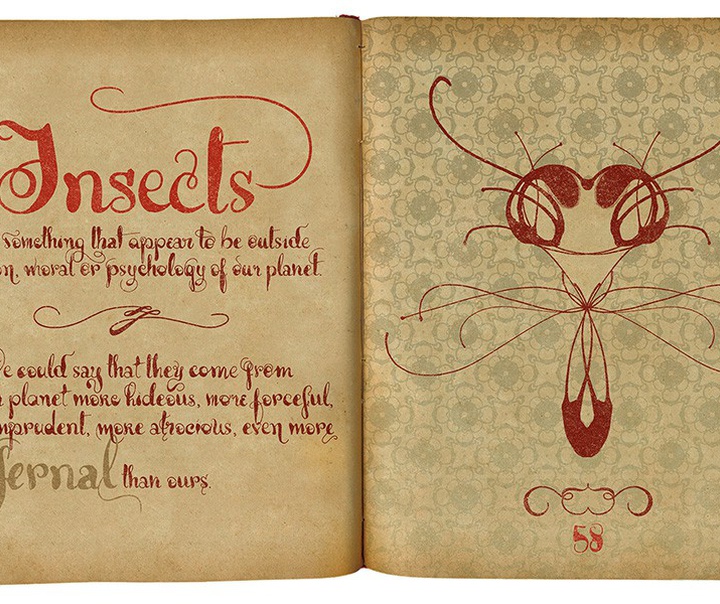 Insects
something that appear to be outside
moral or psychology of our planet.
could say that they come from
planet more hideous, more forceful,
more atrocious, even more
than ours.
58